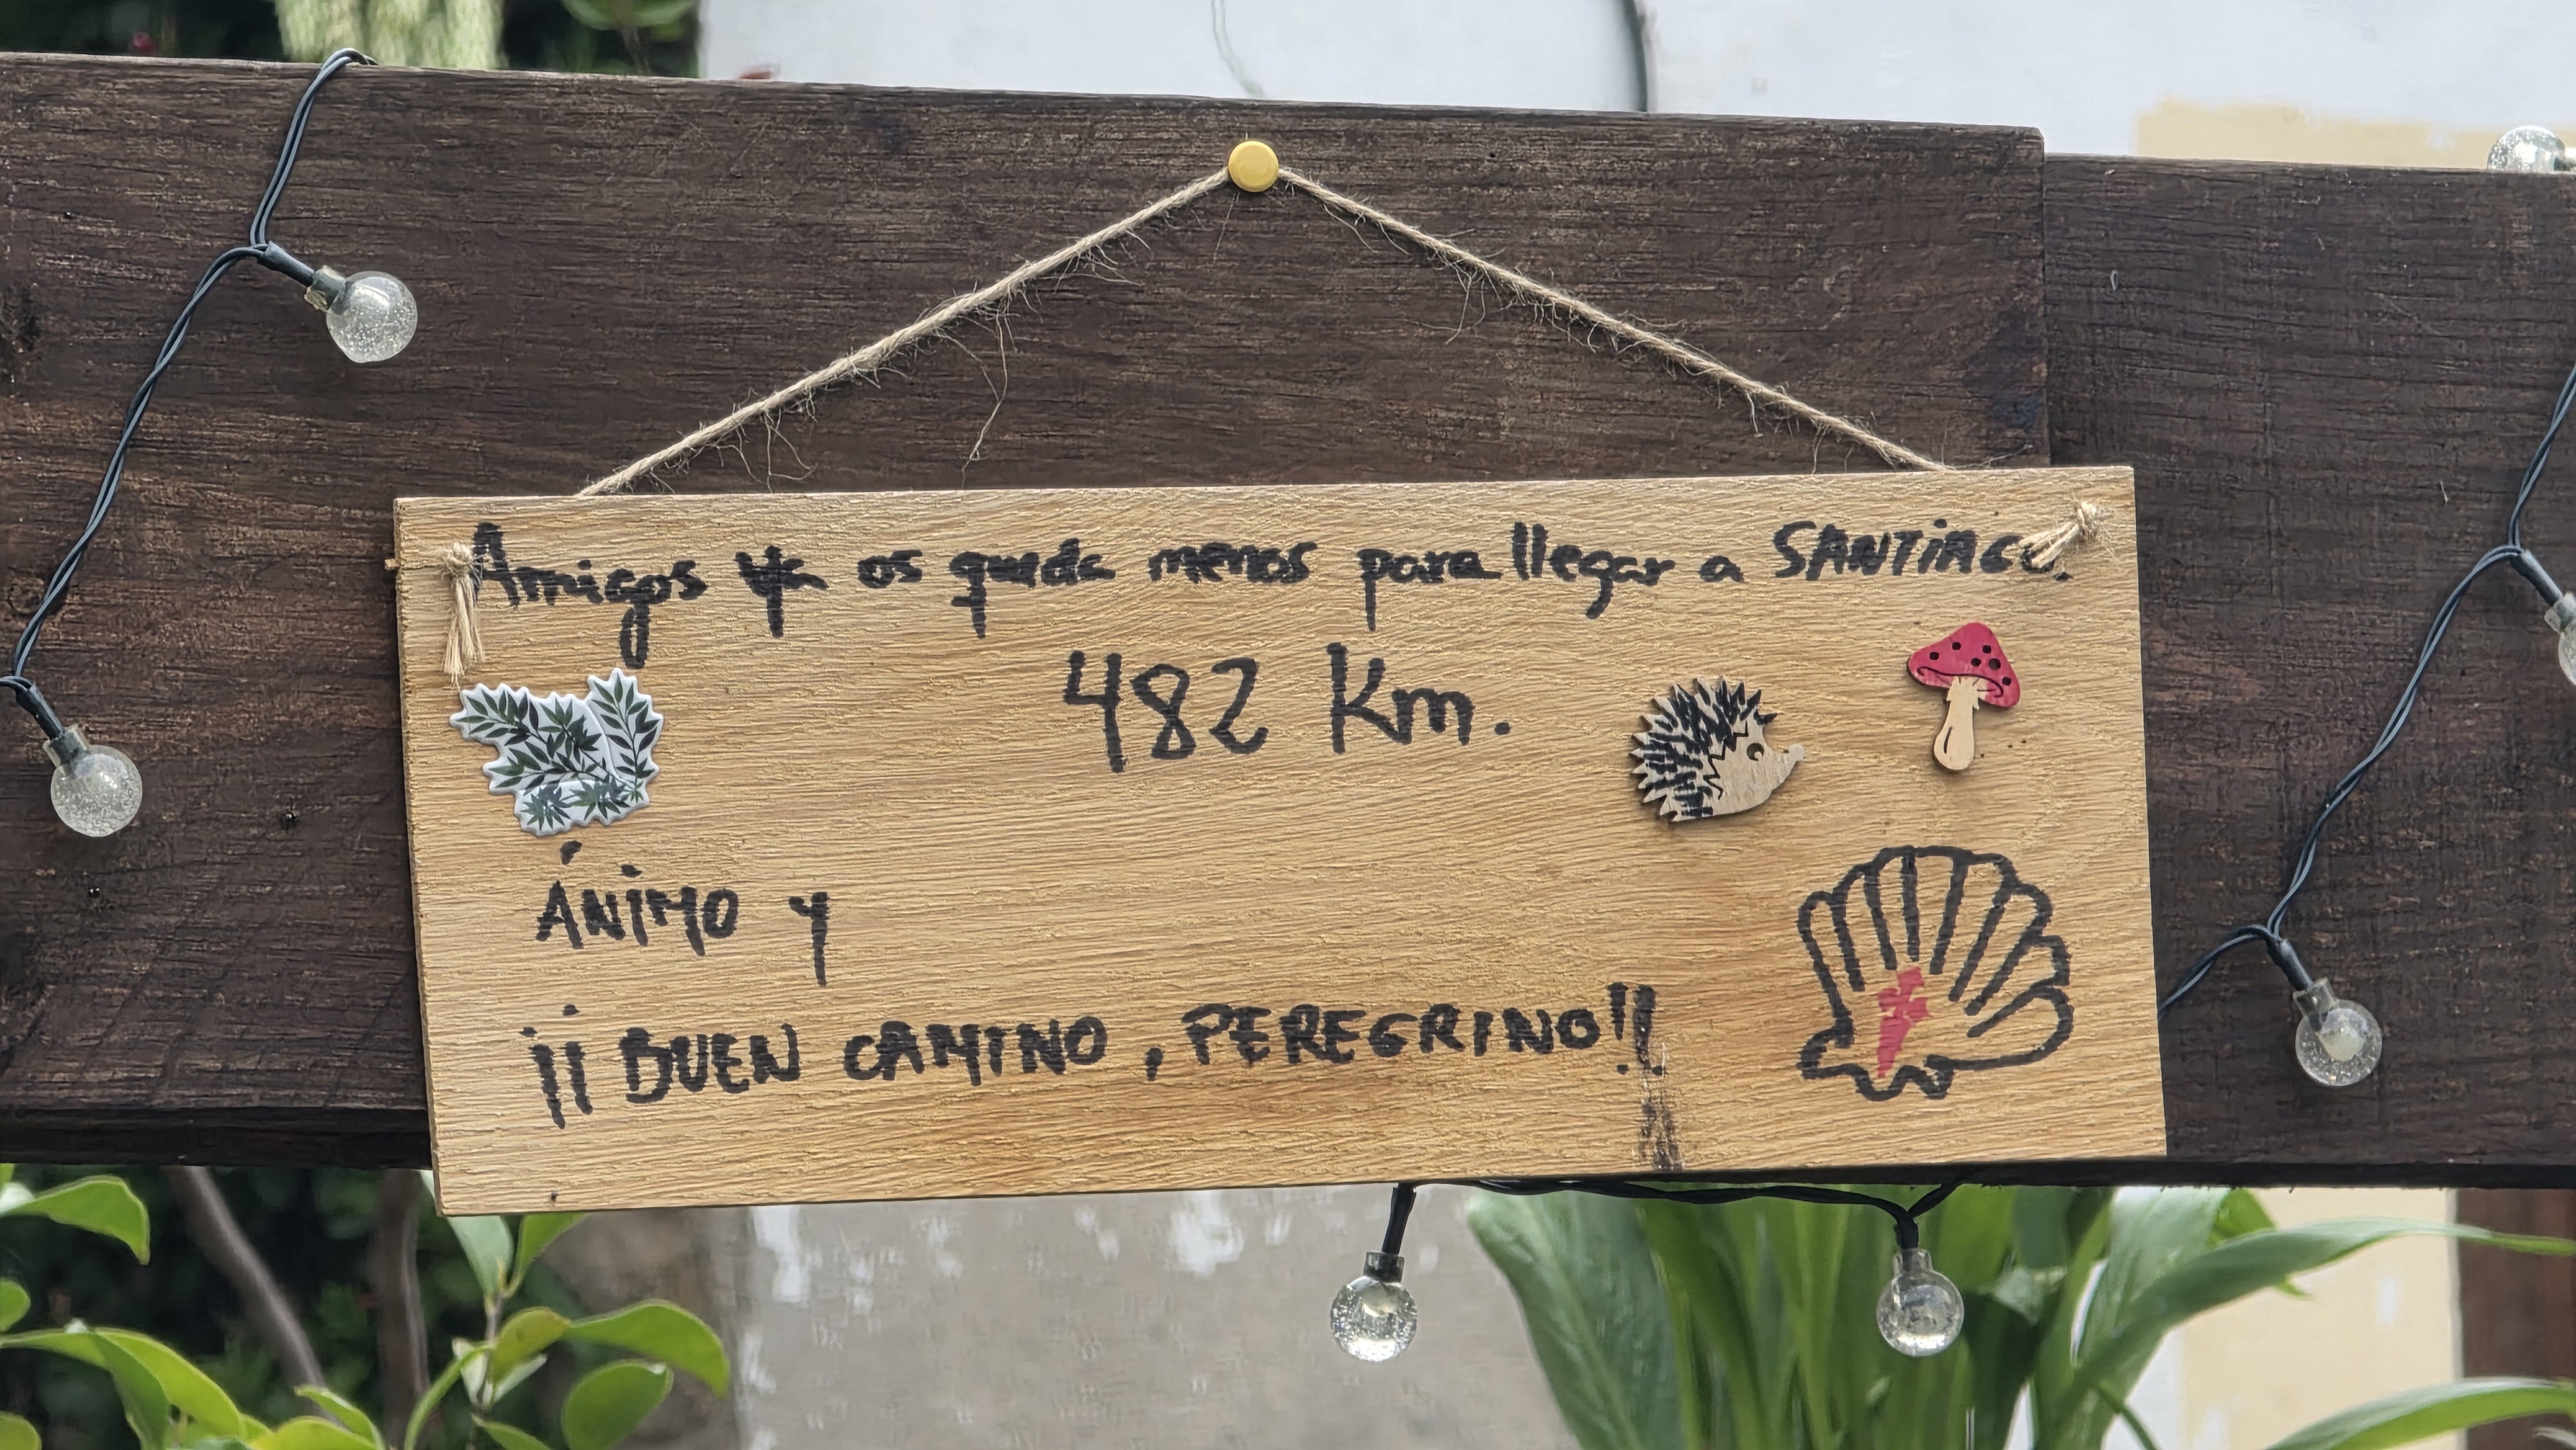 Amigos ya os queda menos para llegar a SANTIAGO.
482 Km.
ÁNIMO y
¡¡BUEN CAMINO, PEREGRINO!!